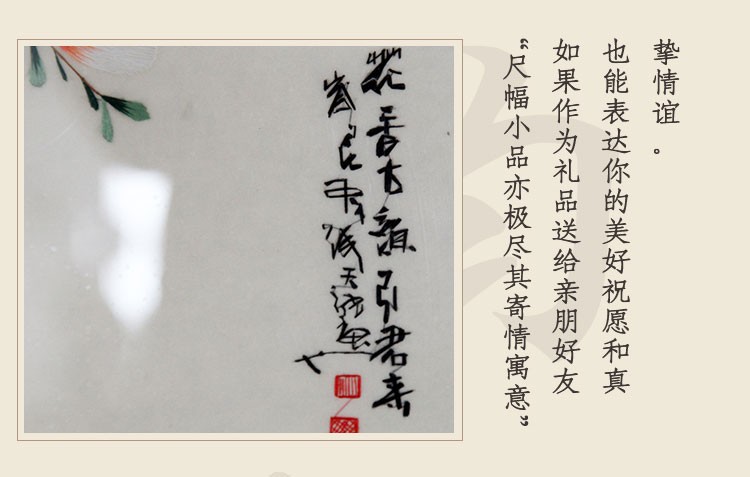 花香古韵引君来
“尺幅小品亦极尽其寄情寓意”
如果作为礼品送给亲朋好友
也能表达你的美好祝愿和真
挚情谊。